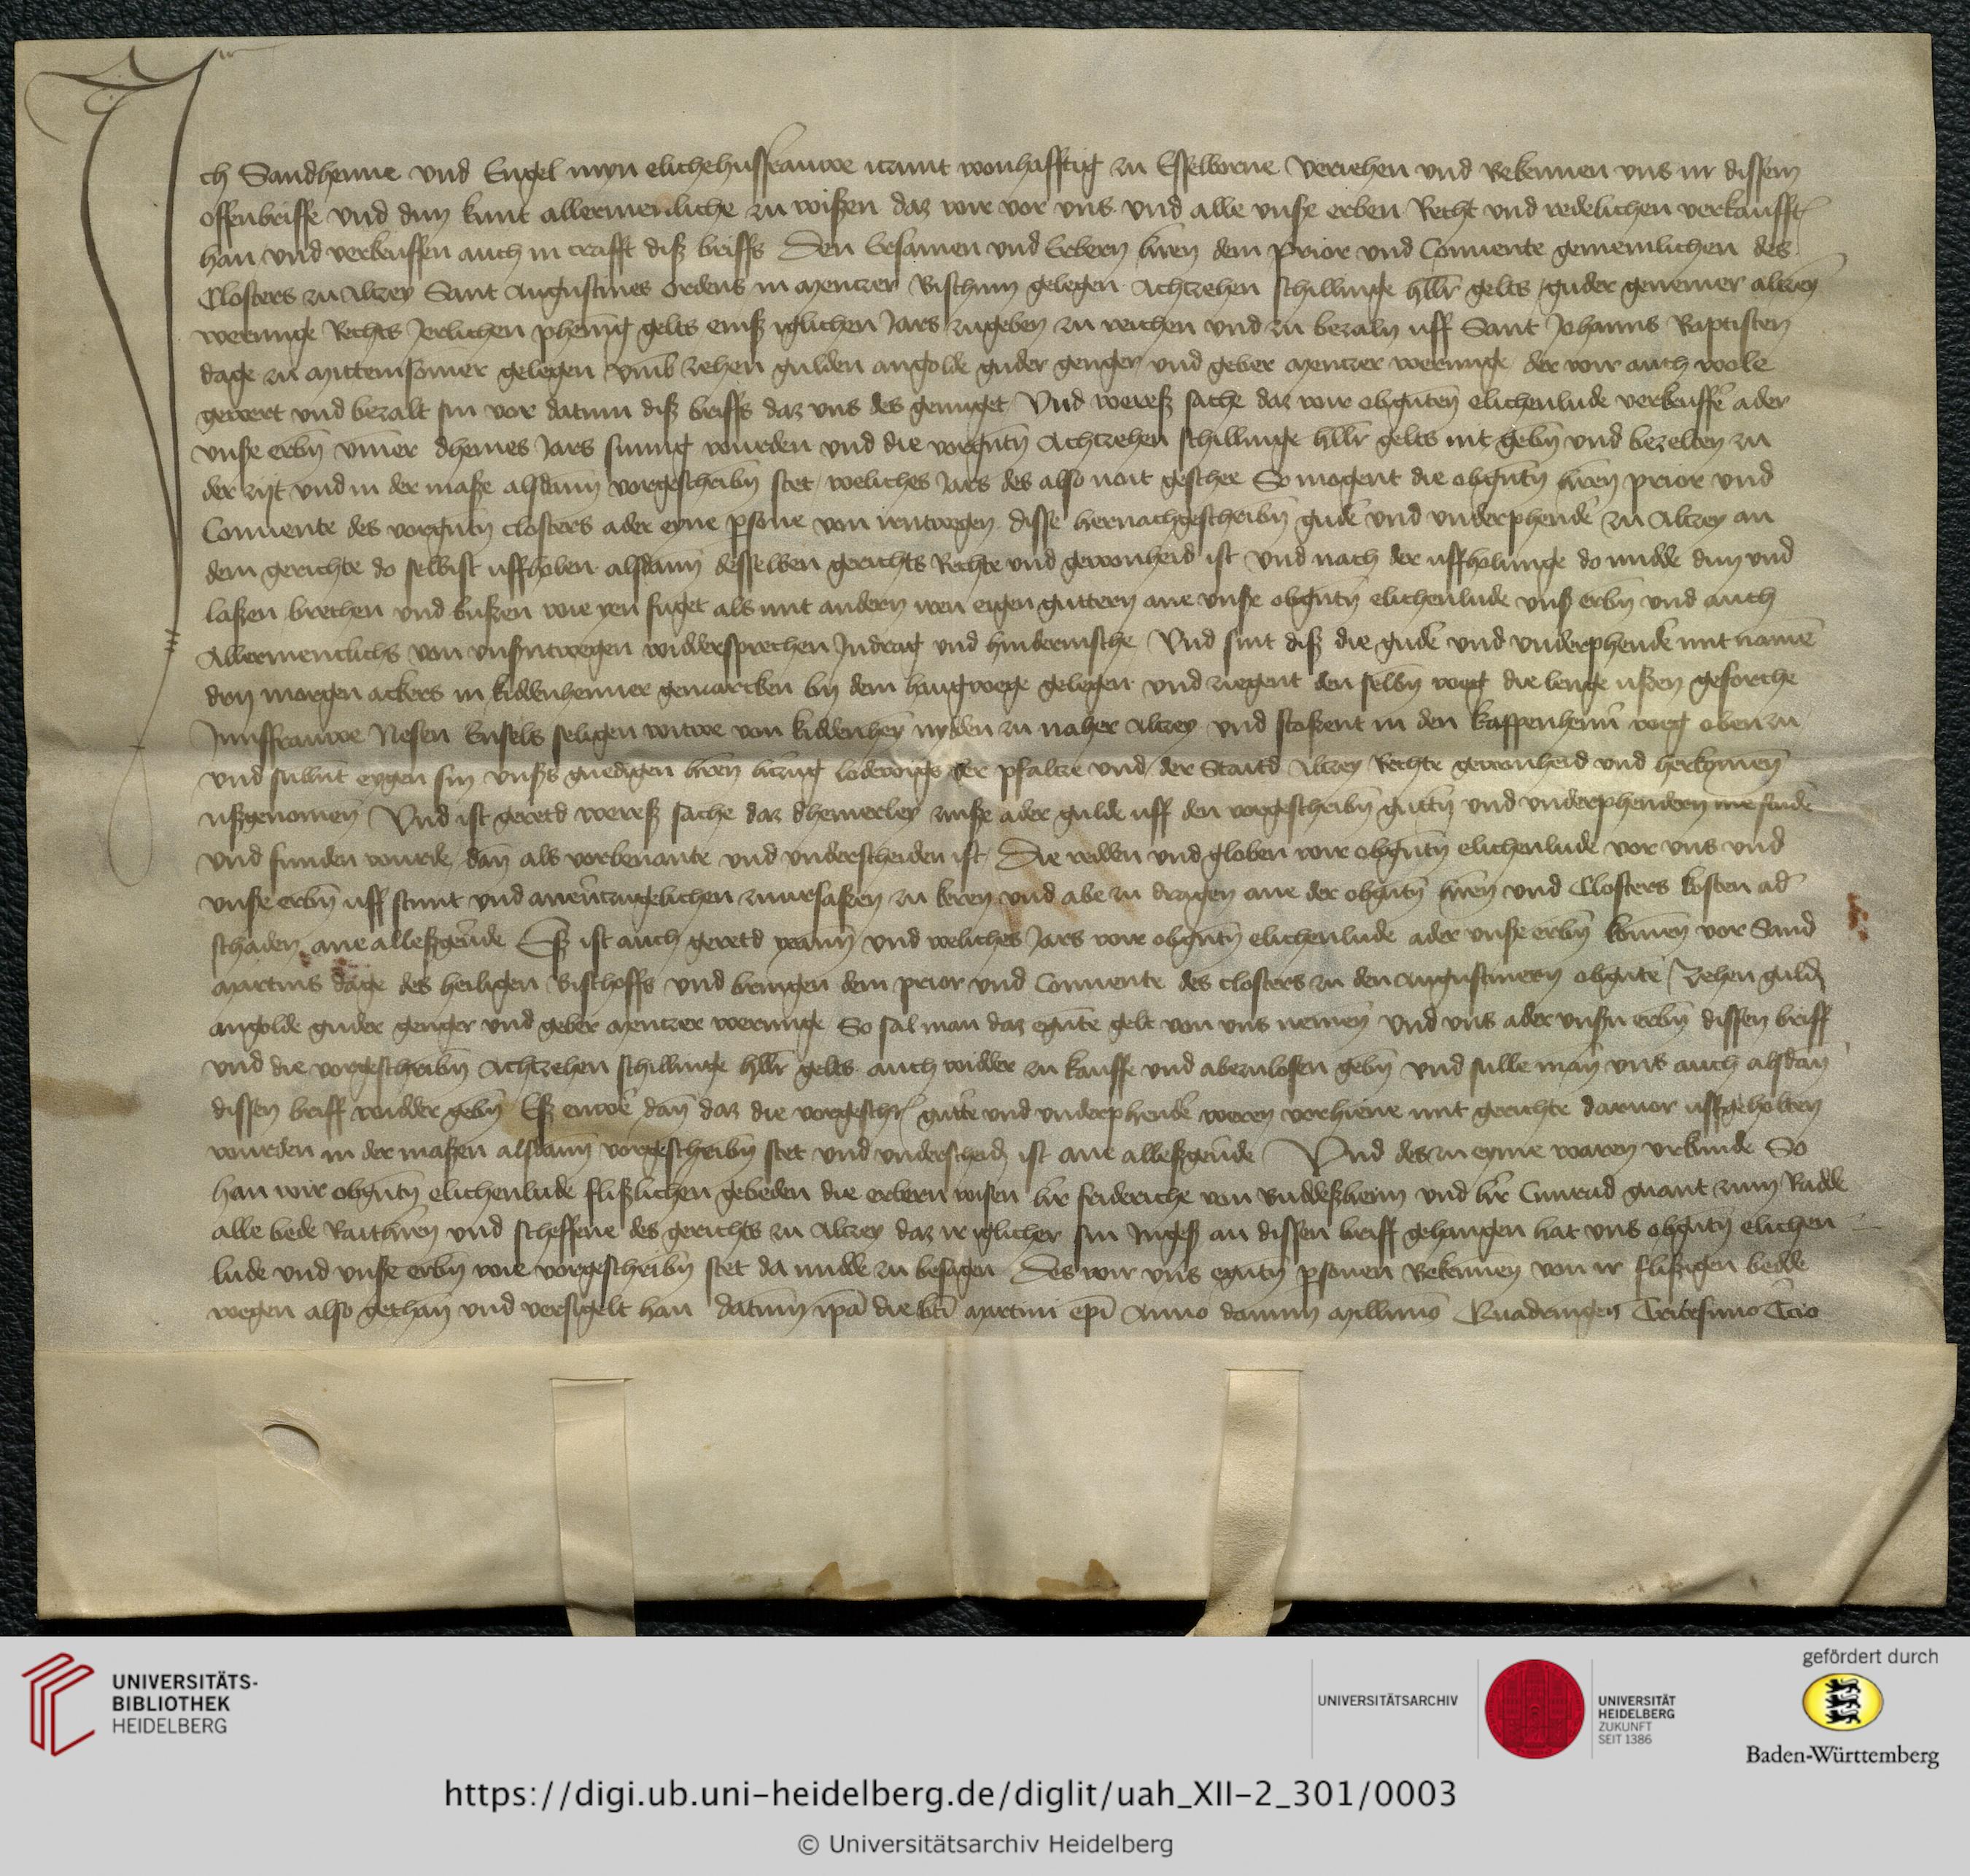 Ich Sandhenne und Engel myn elichehusfrauwe itzunt wonhafftig zu Esselborne veriehen und Bekennen uns in dissem
offenbriffe und dun kunt allermenliche zu wißen daz wir vor uns und alle unße erben Recht und redelichen verkaufft
han und verkeuffen auch in crafft diß briffs Den Ersamen und Erbern hren dem Prior und Conuente gemeinlichen des
Closters zu Altzey Sant Augustines Ordens in Mentzer Bischtum gelegen Achtzehen schillinge hllr gelts guder genemer altzeyer
werunge Rechts Jerlichen phennig gelts eins iglichen Jars zugeben zu reichen und zu bezaln uff Sant Johanns Baptisten
dage zu Mittemsomer gelegen umb zehen gulden angolde guder genger und geber Mentzer werunge der wir auch wole
gewert und bezalt sin vor datum diß briffs daz uns des genuget Und wereß sache daz wir obgnten elichenlude verkeuffer ader
unße erbn ummer dheines Jars sumig wurden und die vorgntn Achtzehen schillinge hllr gelts nit gebn und bezelten zu
der zijt und in der maße alsdann vorgeschribn stet weliches Jars des also noit geschee So mogent die obgntn hren prior und
Conuente des vorgntn closters ader eyne psone von irentwegen disse hernachgeschribn gude und underphende zu Altzey an
dem gerichte do selbist uffholen alsdann desselben gerichts Rechte und gewonheid ist und nach der uffholunge do midde dun und
laßen brechen und bußen wie yen fuget als mit andern iren eigen guttern ane unße obgntn elichenlude unß erbn und auch
Allermenclichs von unßntwegen widdersprechen Indrag und hindernische Und sint diß die gude und underphende mit namen
dry morgen ackers in kiddenheimer gemarcken by dem haugwege gelegen und ziegent den selbn weg die lenge ußen geforche
Junffrauwe Nesen Ensels seligen witwe von kiddenheym nydden zu naher Altzey und stoßent in den kappenheimer weg oben zu
und sullnt eygen sin unßs gnedigen hren hertzug lodewigs der pfaltze und der Staitd Altzey Rechte gewonheid und herkomen
ußgenomen Und ist geretd wereß sache daz dheinerley zinße ader gulde uff den vorgeschribn guttn und underphendern me stunde
und funden wurde dan als vorbenante und underscheiden ist Die redden und globen wir obgntn elichenlude vor uns und
unße erbn uff stunt und unertzugelichen zuuersaßen zu keren und abe zu dragen ane der obgntn hren und Closters kosten ader
schaden ane alleßgeuerde Eß ist auch geretd wann und weliches Jars wir obgntn elichenlude ader unße erbn komen vor Sand
Martins dage des heiligen Bischoffs und bringen dem prior und Conuente des closters zu den Augustinern obgnte Zehen gulden
angolde guder genger und geber Mentzer werunge So sal man daz egnte gelt von uns nemen und uns ader unßn erbn dissen briff
und die vorgeschribn Achtzehen schillinge hllr gelts auch widder zu kauffe und abezulosen gebn und sulle man uns auch alsdan
dissen briff widder gebn Eß enwer dan daz die vorgeschr gute und underphende weren vorhiene mit gerichte daruor uffgeholten
wurden in der maßen alsdann vorgeschribn stet und underscheid ist ane alleßgeuerde Und des zu eyme waren urkunde So
han wir obgntn elichenlude flißlichen gebeden die erbern wisen hr friderichs von Buddeßheim und hr Cunrad gnant zum Radde
alle bede Raithren und scheffene des gerichts zu Altzey daz ir iglicher sin Ingeß an dissen briff gehangen hat uns obgntn elichen
lude und unße erbn wie vorgeschribn stet da midde zu besagen Des wir uns egntn psonen Bekennen von ir flißigen bedde
wegen also gethan und versigelt han datum ipa die bti Martini epi Anno domini Millimo Quadringen Tricesimo Tcio
UNIVERSITÄTS-
BIBLIOTHEK
HEIDELBERG
UNIVERSITÄTSARCHIV
UNIVERSITÄT
HEIDELBERG
ZUKUNFT
SEIT 1386
gefördert durch
Baden-Württemberg
https://digi.ub.uni-heidelberg.de/diglit/uah_XII-2_301/0003
© Universitätsarchiv Heidelberg